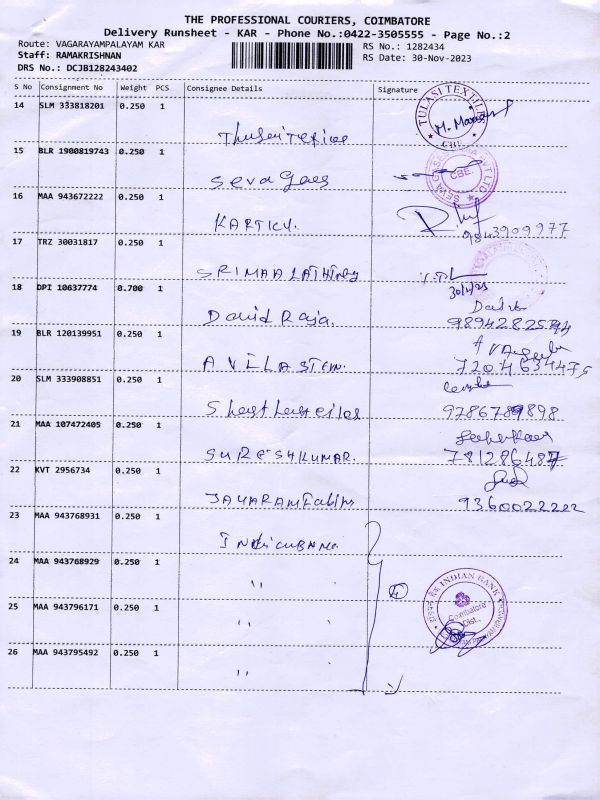 THE PROFESSIONAL COURIERS, COIMBATORE
Delivery Runsheet - KAR - Phone No.:0422-3505555 - Page No.:2
Route: VAGARAYAMPALAYAM KAR
RS No.: 1282434
Staff: RAMAKRISHNAN
RS Date: 30-Nov-2023
DRS No.: DCJB128243402
S No Consignment No Weight PCS Consignee Details Signature
14 SLM 333818201 0.250 1
TULASI TEXTILE
M. Manoj
CBE
15 BLR 1900819743 0.250 1 Seva Gases
CBE.
16 MAA 943672222 0.250 1 KARTICK.
9843909977
17 TRZ 30031817 0.250 1 SRIMAA
30/11/23
18 DPI 10637774 0.700 1 David Raja.
9894282594
19 BLR 120139951 0.250 1 AVILA
7204634475
20 SLM 333908851 0.250 1
9786789898
21 MAA 107472405 0.250 1 SURESHKUMAR.
781286487
22 KVT 2956734 0.250 1 JAYARAM Fabips
9360022222
23 MAA 943768931 0.250 1 Indianbank
24 MAA 943768929 0.250 1 "
4
INDIAN BANK
25 MAA 943796171 0.250 1 "
Coimbatore
Dist.,
26 MAA 943795492 0.250 1 "